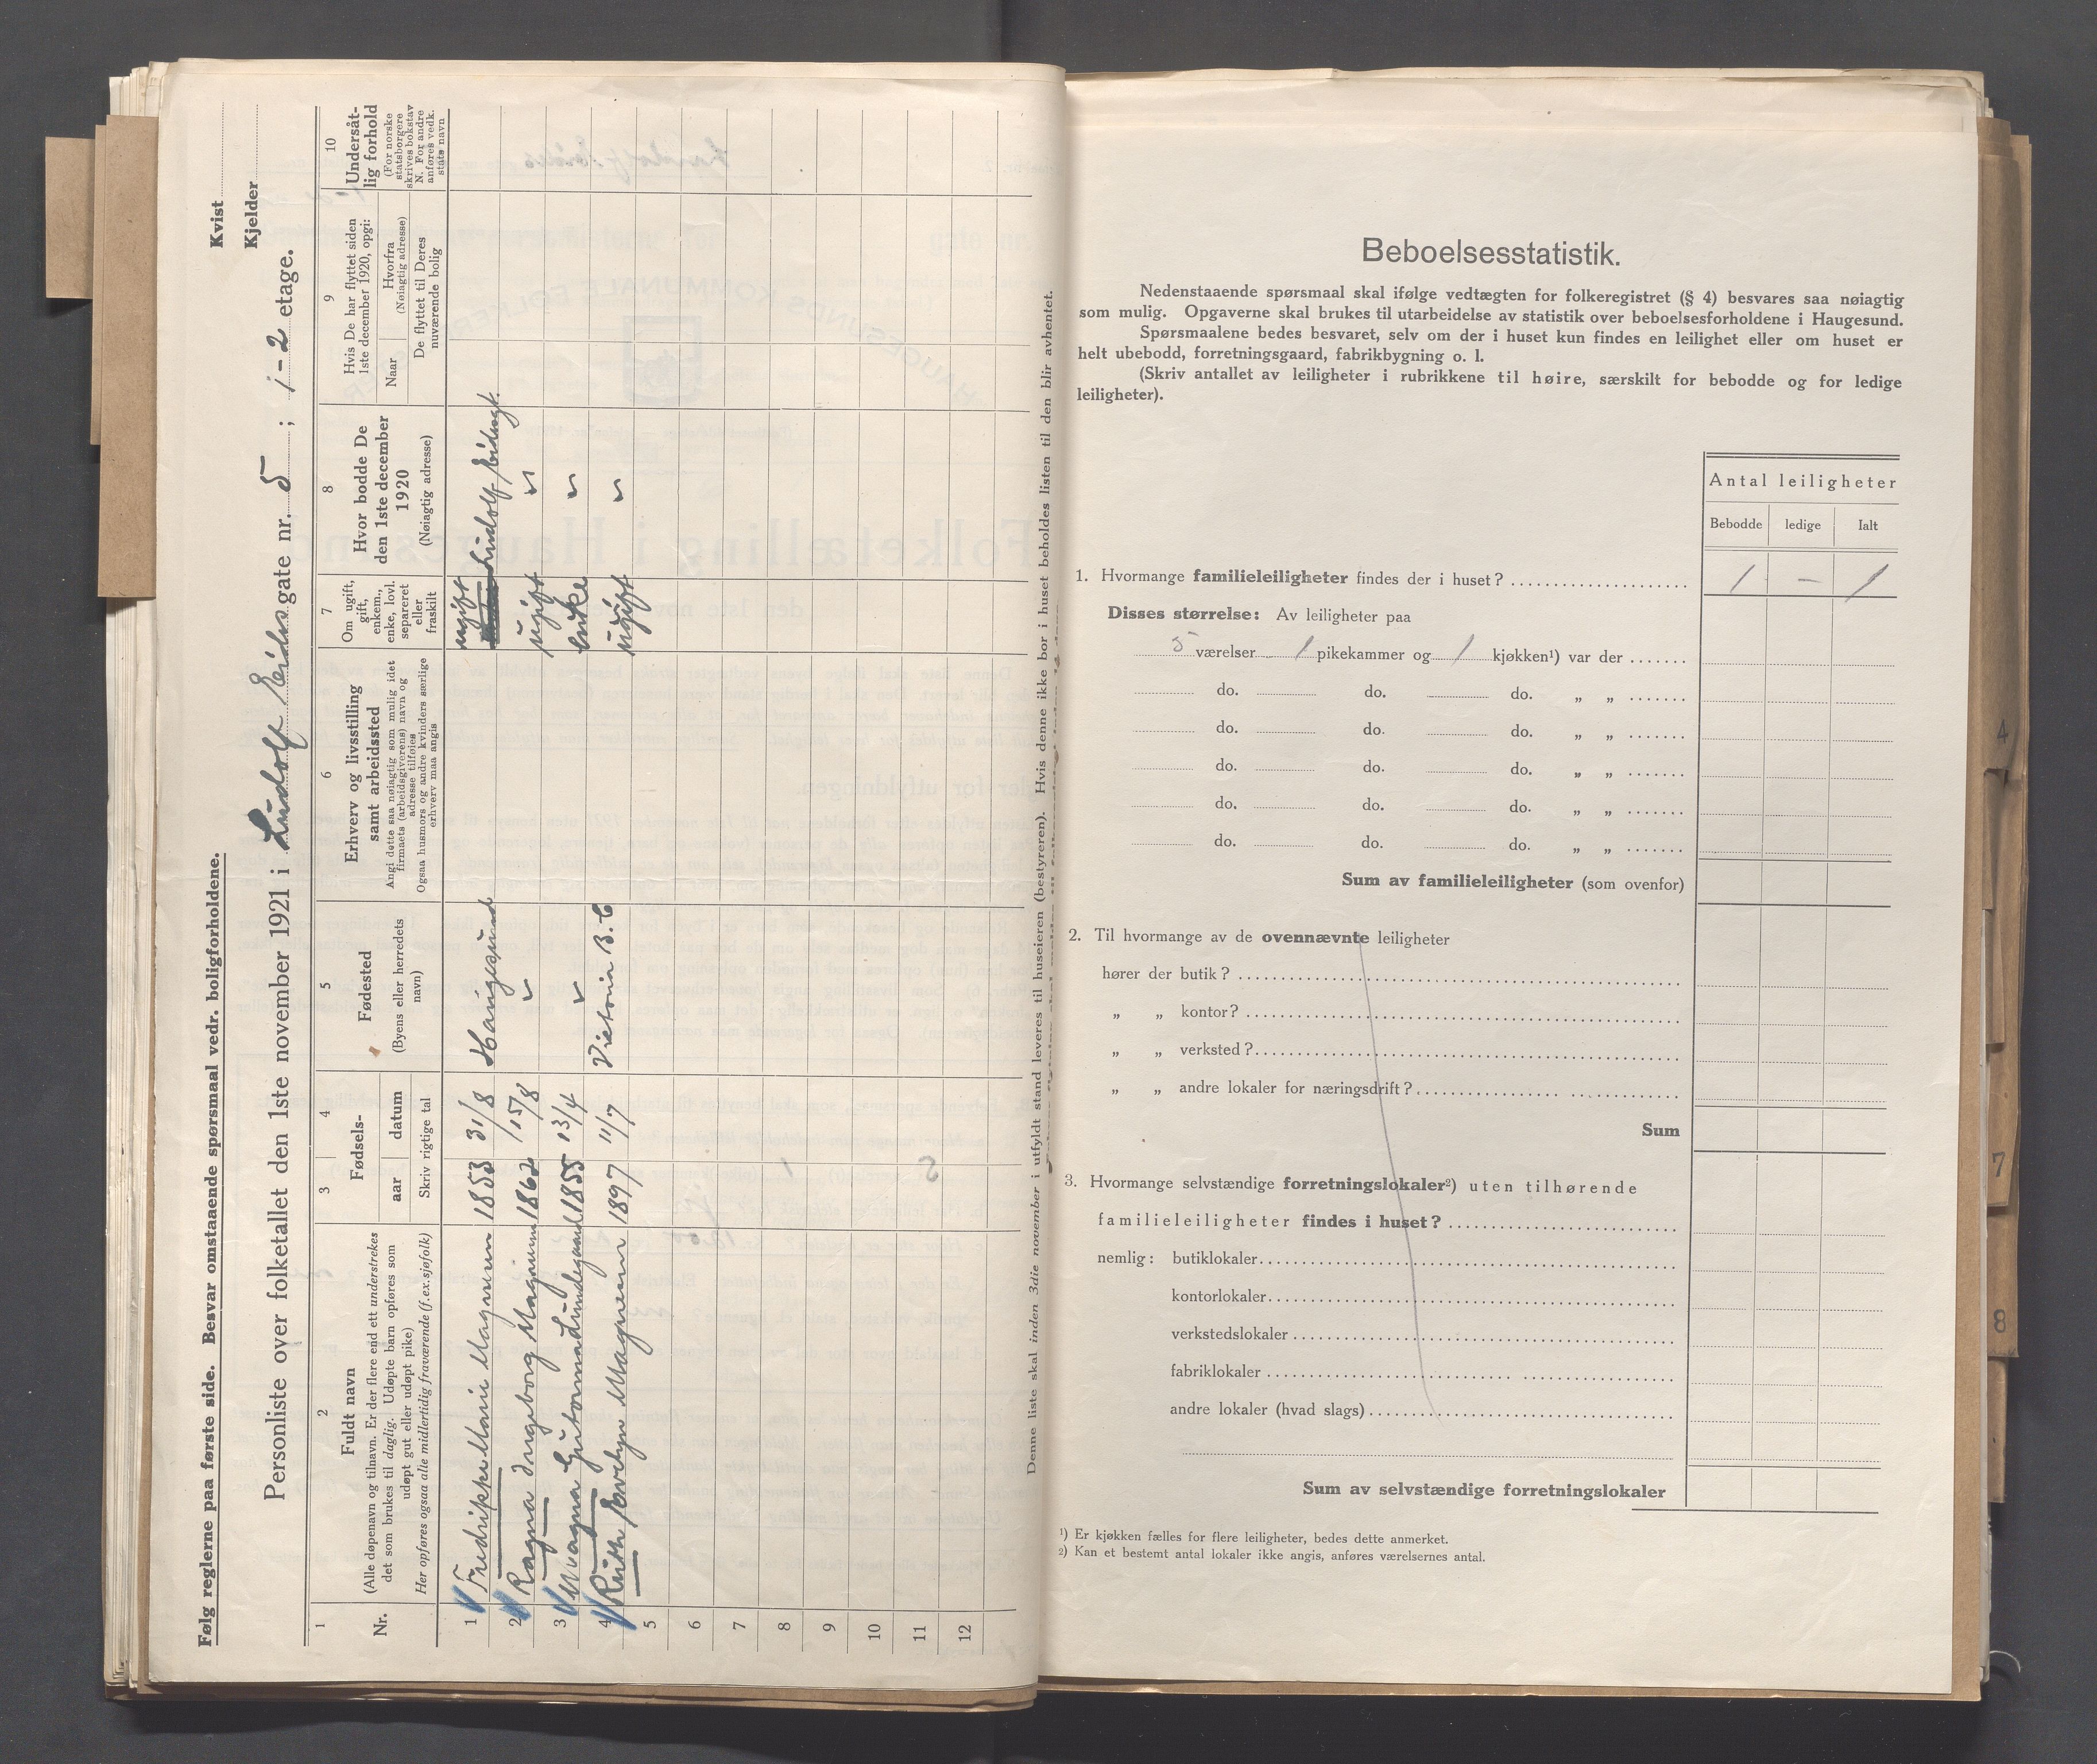 Følg reglerne paa første side. Besvar omstaaende spørsmaal vedr. boligforholdene.
Kvist
Kjelder
Personliste over folketallet den 1ste november 1921 i Ludolf Eides gate nr. 5 ; 1-2 etage.
1
Nr.
2
Fuldt navn
(Alle døpenavn og tilnavn. Er der flere end ett understrekes
det som brukes til daglig. Udøpte barn opføres som
udøpt gut eller udøpt pike)
Her opføres ogsaa alle midlertidig fraværende (f.ex. sjøfolk)
3 4
Fødsels-
aar datum
Skriv rigtige tal
5
Fødested
(Byens eller herredets
navn)
6
Erhverv og livsstilling
samt arbeidssted
Angi dette saa nøiagtig som mulig idet
firmaets (arbeidsgiverens) navn og
adresse tilføies
Ogsaa husmors og andre kvinders særlige
erhverv maa angis
7
Om ugift,
gift,
enkem.,
enke, lovl.
separeret
eller
fraskilt
8
Hvor bodde De
den 1ste december
1920
(Nøiagtig adresse)
9
Hvis De har flyttet siden
1ste december 1920, opgi:
Naar
Hvorfra
(Nøiagtig adresse)
De flyttet til Deres
nuværende bolig
10
Undersåt-
lig forhold
(For norske
statsborgere
skrives bokstav
N. For andre
anføres vedk.
stats navn
1 Fredrikke Marie Magnum 1853 31/8 Haugesund ugift Ludolf Eidesgt.
2 Ragna Ingeborg Magnum 1862 15/8 " ugift "
3 Guttorma Lindegaard 1855 13/4 " enke "
4 Ruth Evelyn Magnum 1897 11/7 Victoria B.C ugift "
5
6
7
8
9
10
11
12
Denne liste skal inden 3die november i utfyldt stand leveres til huseieren (bestyreren). Hvis denne ikke bor i huset beholdes listen til den blir avhentet.
Beboelsesstatistik.
Nedenstaaende spørsmaal skal ifølge vedtægten for folkeregistret (§ 4) besvares saa nøiagtig
som mulig. Opgaverne skal brukes til utarbeidelse av statistik over beboelsesforholdene i Haugesund.
Spørsmaalene bedes besvaret, selv om der i huset kun findes en leilighet eller om huset er
helt ubebodd, forretningsgaard, fabrikbygning o. l.
(Skriv antallet av leiligheter i rubrikkene til høire, særskilt for bebodde og for ledige
leiligheter).
Antal leiligheter
Bebodde ledige Ialt
1. Hvormange familieleiligheter findes der i huset? 1 – 1
Disses størrelse: Av leiligheter paa
5 værelser 1 pikekammer og 1 kjøkken¹) var der
do. do. do. „ „
do. do. do. „ „
do. do. do. „ „
do. do. do. „ „
do. do. do. „ „
Sum av familieleiligheter (som ovenfor)
2. Til hvormange av de ovennævnte leiligheter
hører der butik?
„ „ kontor?
„ „ verksted?
„ „ andre lokaler for næringsdrift?
Sum
3. Hvormange selvstændige forretningslokaler²) uten tilhørende
familieleiligheter findes i huset?
nemlig: butiklokaler
kontorlokaler
verkstedslokaler
fabriklokaler
andre lokaler (hvad slags)
Sum av selvstændige forretningslokaler
¹) Er kjøkken fælles for flere leiligheter, bedes dette anmerket.
²) Kan et bestemt antal lokaler ikke angis, anføres værelsernes antal.
4
7
8